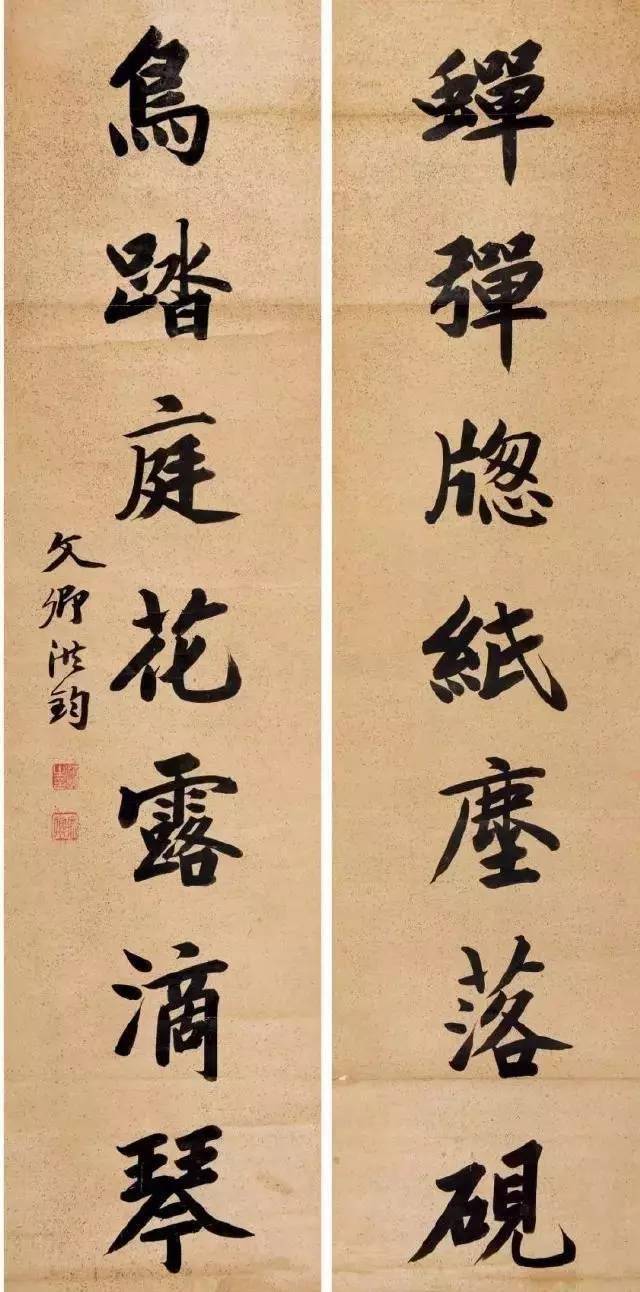 蟬彈牎紙塵落硯
鳥踏庭花露滴琴
文卿洪鈞